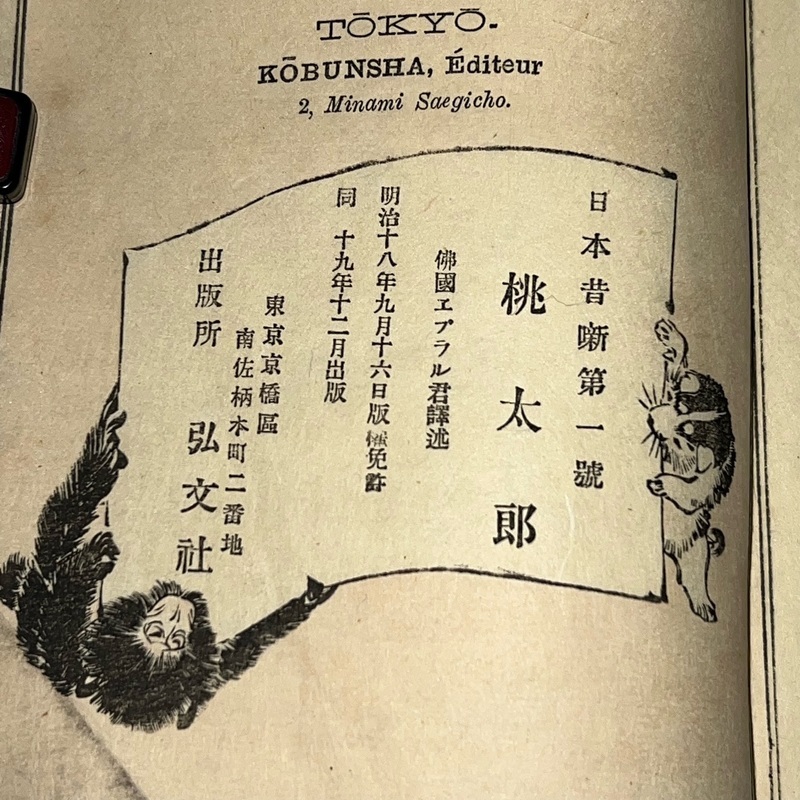 TŌKYŌ.
KŌBUNSHA, Éditeur
2, Minami Saegicho.
日本昔噺第一號
桃太郎
佛國エブラル君譯述
明治十八年九月十六日版權免許
同 十九年十二月出版
東京京橋區
南佐柄木町二番地
出版所 弘文社